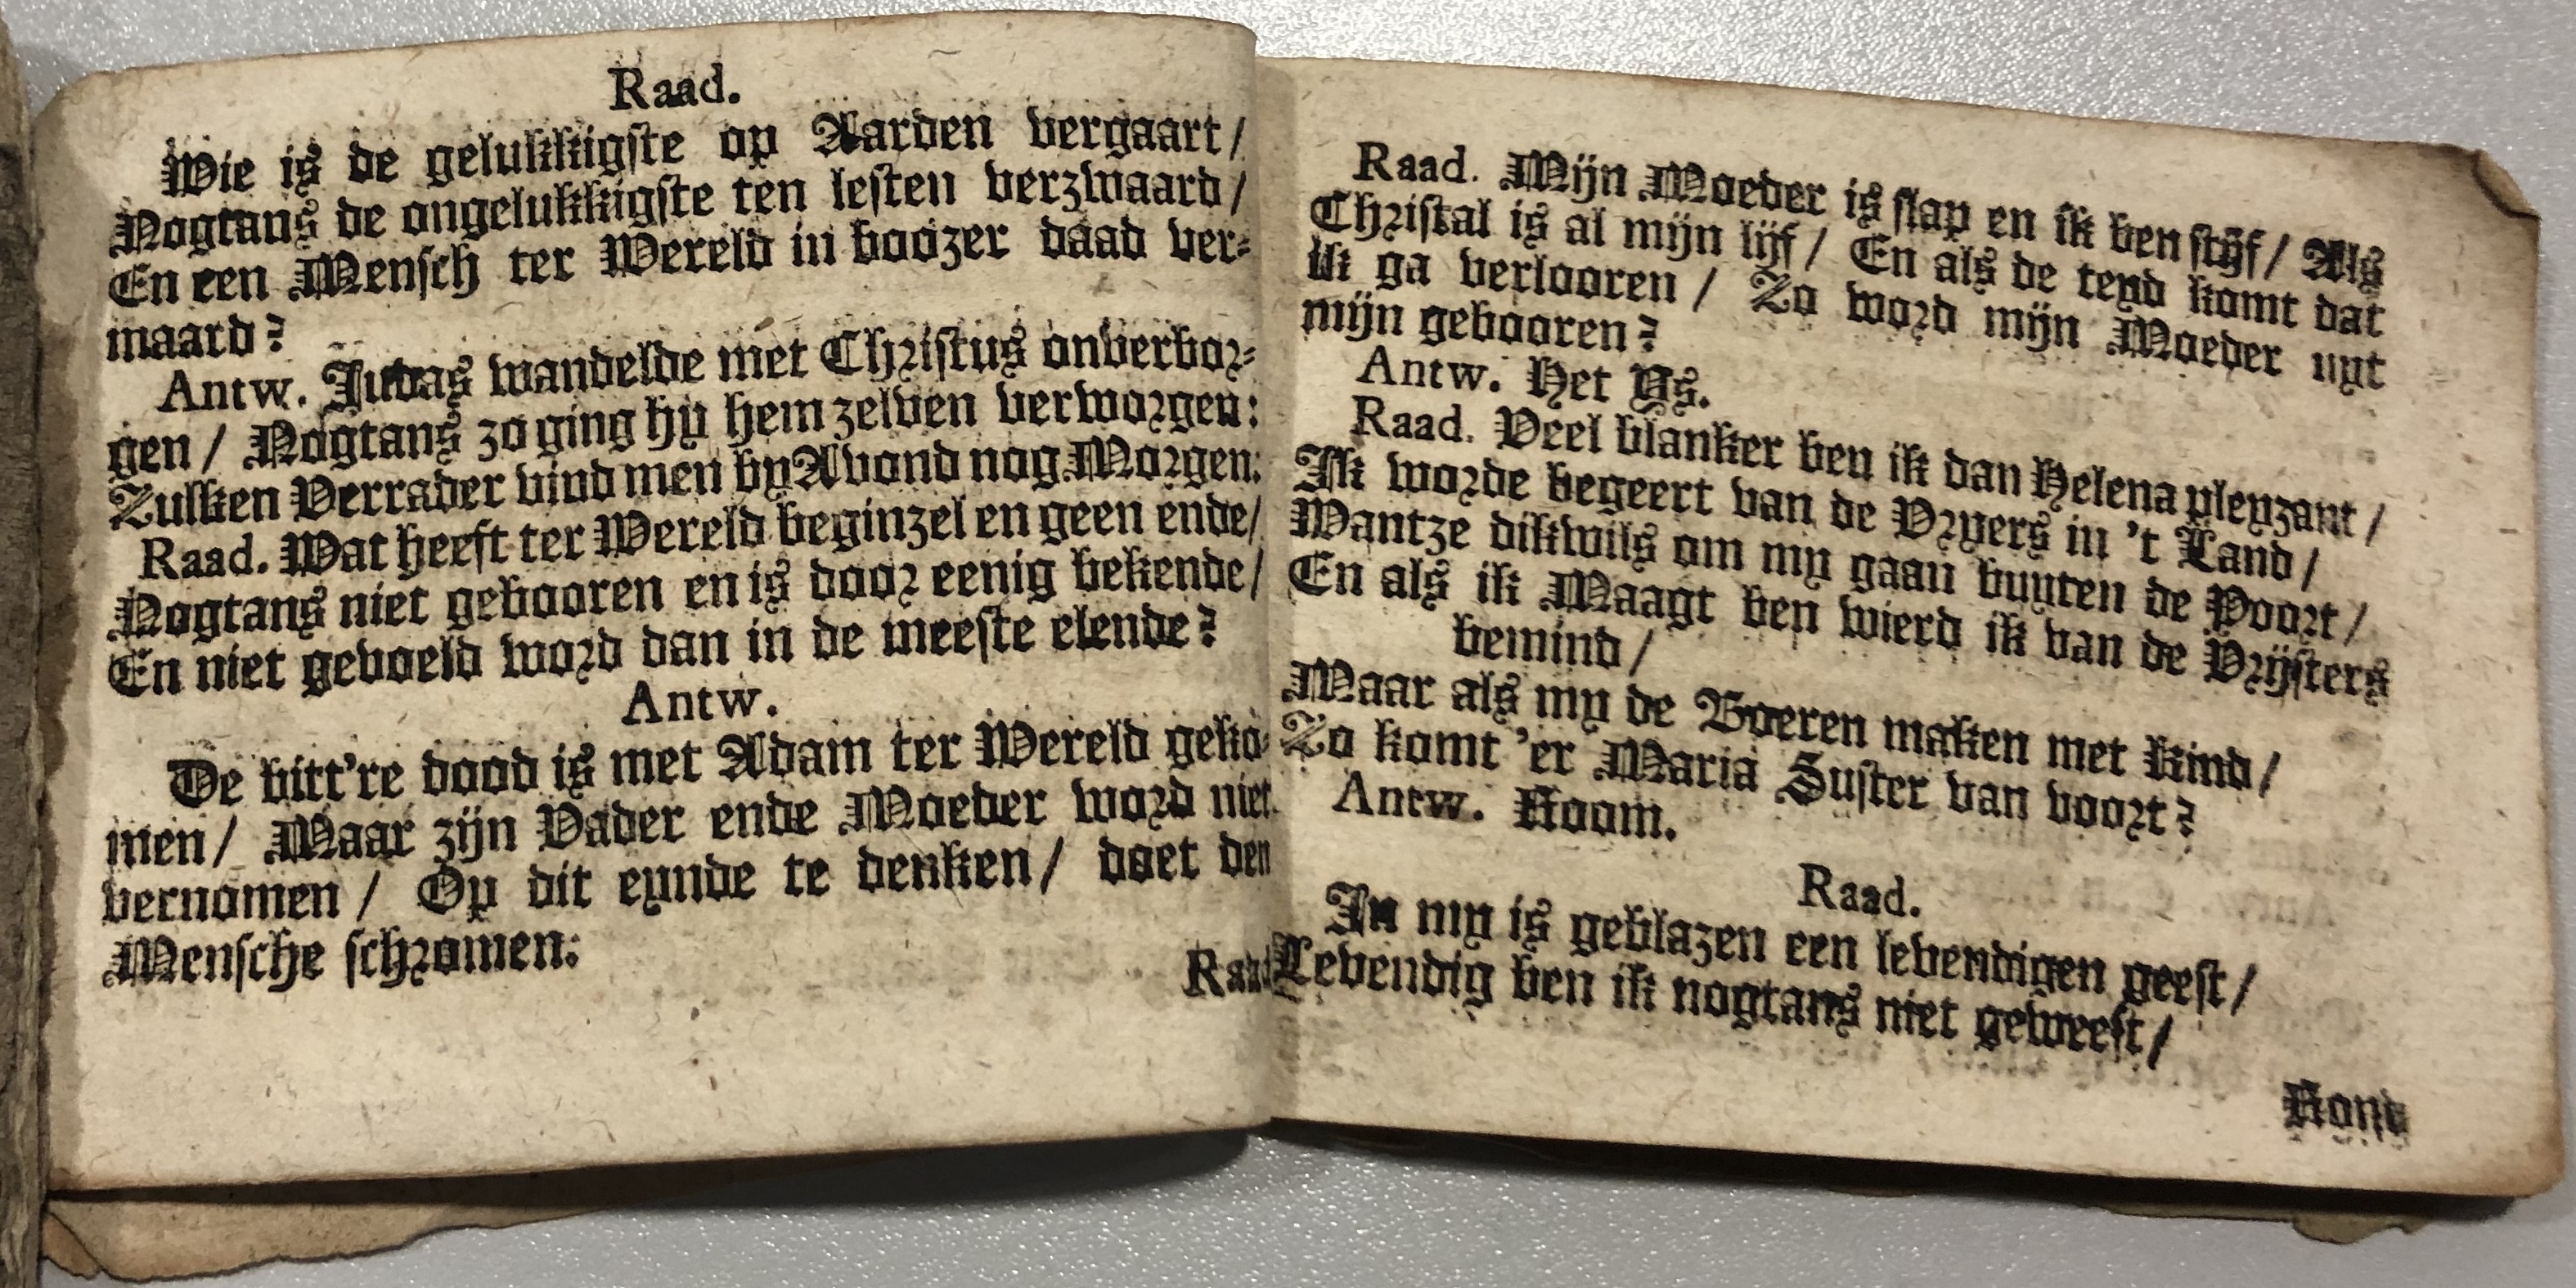 Raad.
Wie is de gelukkigste op Aarden vergaart/
Nogtans de ongelukkigste ten lesten verzwaard/
En een Mensch ter Wereld in boozer daad ver-
maard?
Antw. Judas wandelde met Christus onverbor-
gen/ Nogtans zo ging hy hem zelven verworgen:
Zulken Verrader vind men by Avond nog Morgen:
Raad. Wat heeft ter Wereld beginzel en geen ende/
Nogtans niet gebooren en is door eenig bekende/
En niet gevoeld word dan in de meeste elende?
Antw.
De bitt're dood is met Adam ter Wereld geko-
men/ Maar zijn Vader ende Moeder word niet
vernomen/ Op dit eynde te denken/ doet den
Mensche schromen:
Raad
Raad. Mijn Moeder is slap en ik ben stijf/ Als
Christal is al mijn lijf/ En als de teyd komt dat
ik ga verlooren/ Zo word mijn Moeder uyt
mijn gebooren?
Antw. Het Ys.
Raad. Veel blanker ben ik dan Helena pleyzant/
Ik worde begeert van de Vryers in 't Land/
Wantze dikwils om my gaan buyten de Poort/
En als ik Maagt ben wierd ik van de Vrijsters
bemind/
Maar als my de Boeren maken met kind/
Zo komt 'er Maria Suster van voort?
Antw. Room.
Raad.
In my is geblazen een levendigen geest/
Levendig ben ik nogtans niet geweest/
Rond